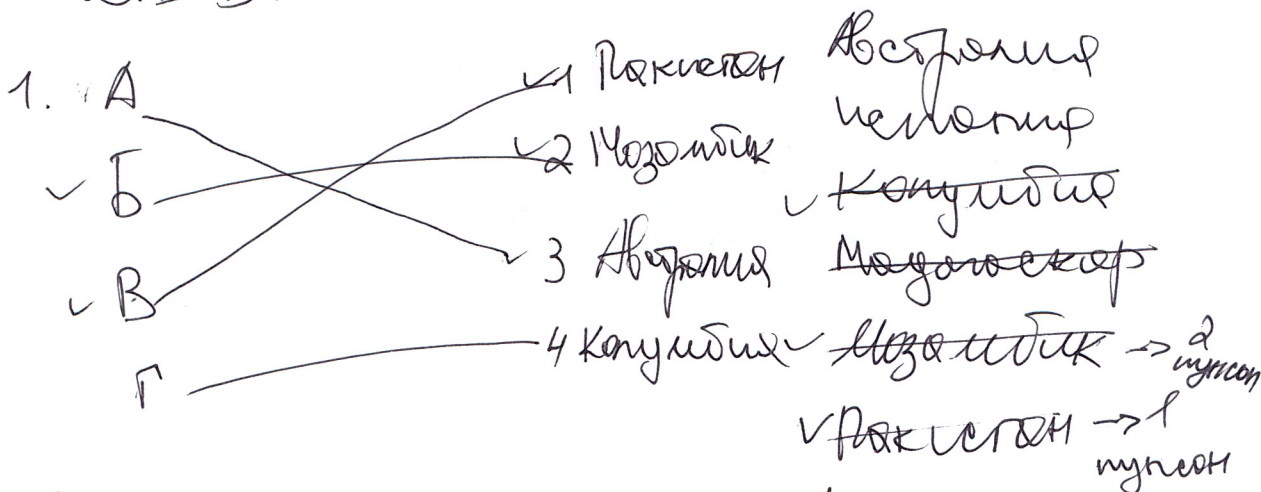 1. А
Б
В
Г
1 Пакистан
2 Мозамбик
3 Австралия
4 Колумбия
Австралия
Испания
Колумбия
Мадагаскар
Мозамбик → 2 пунсон
Пакистан → 1 пунсон